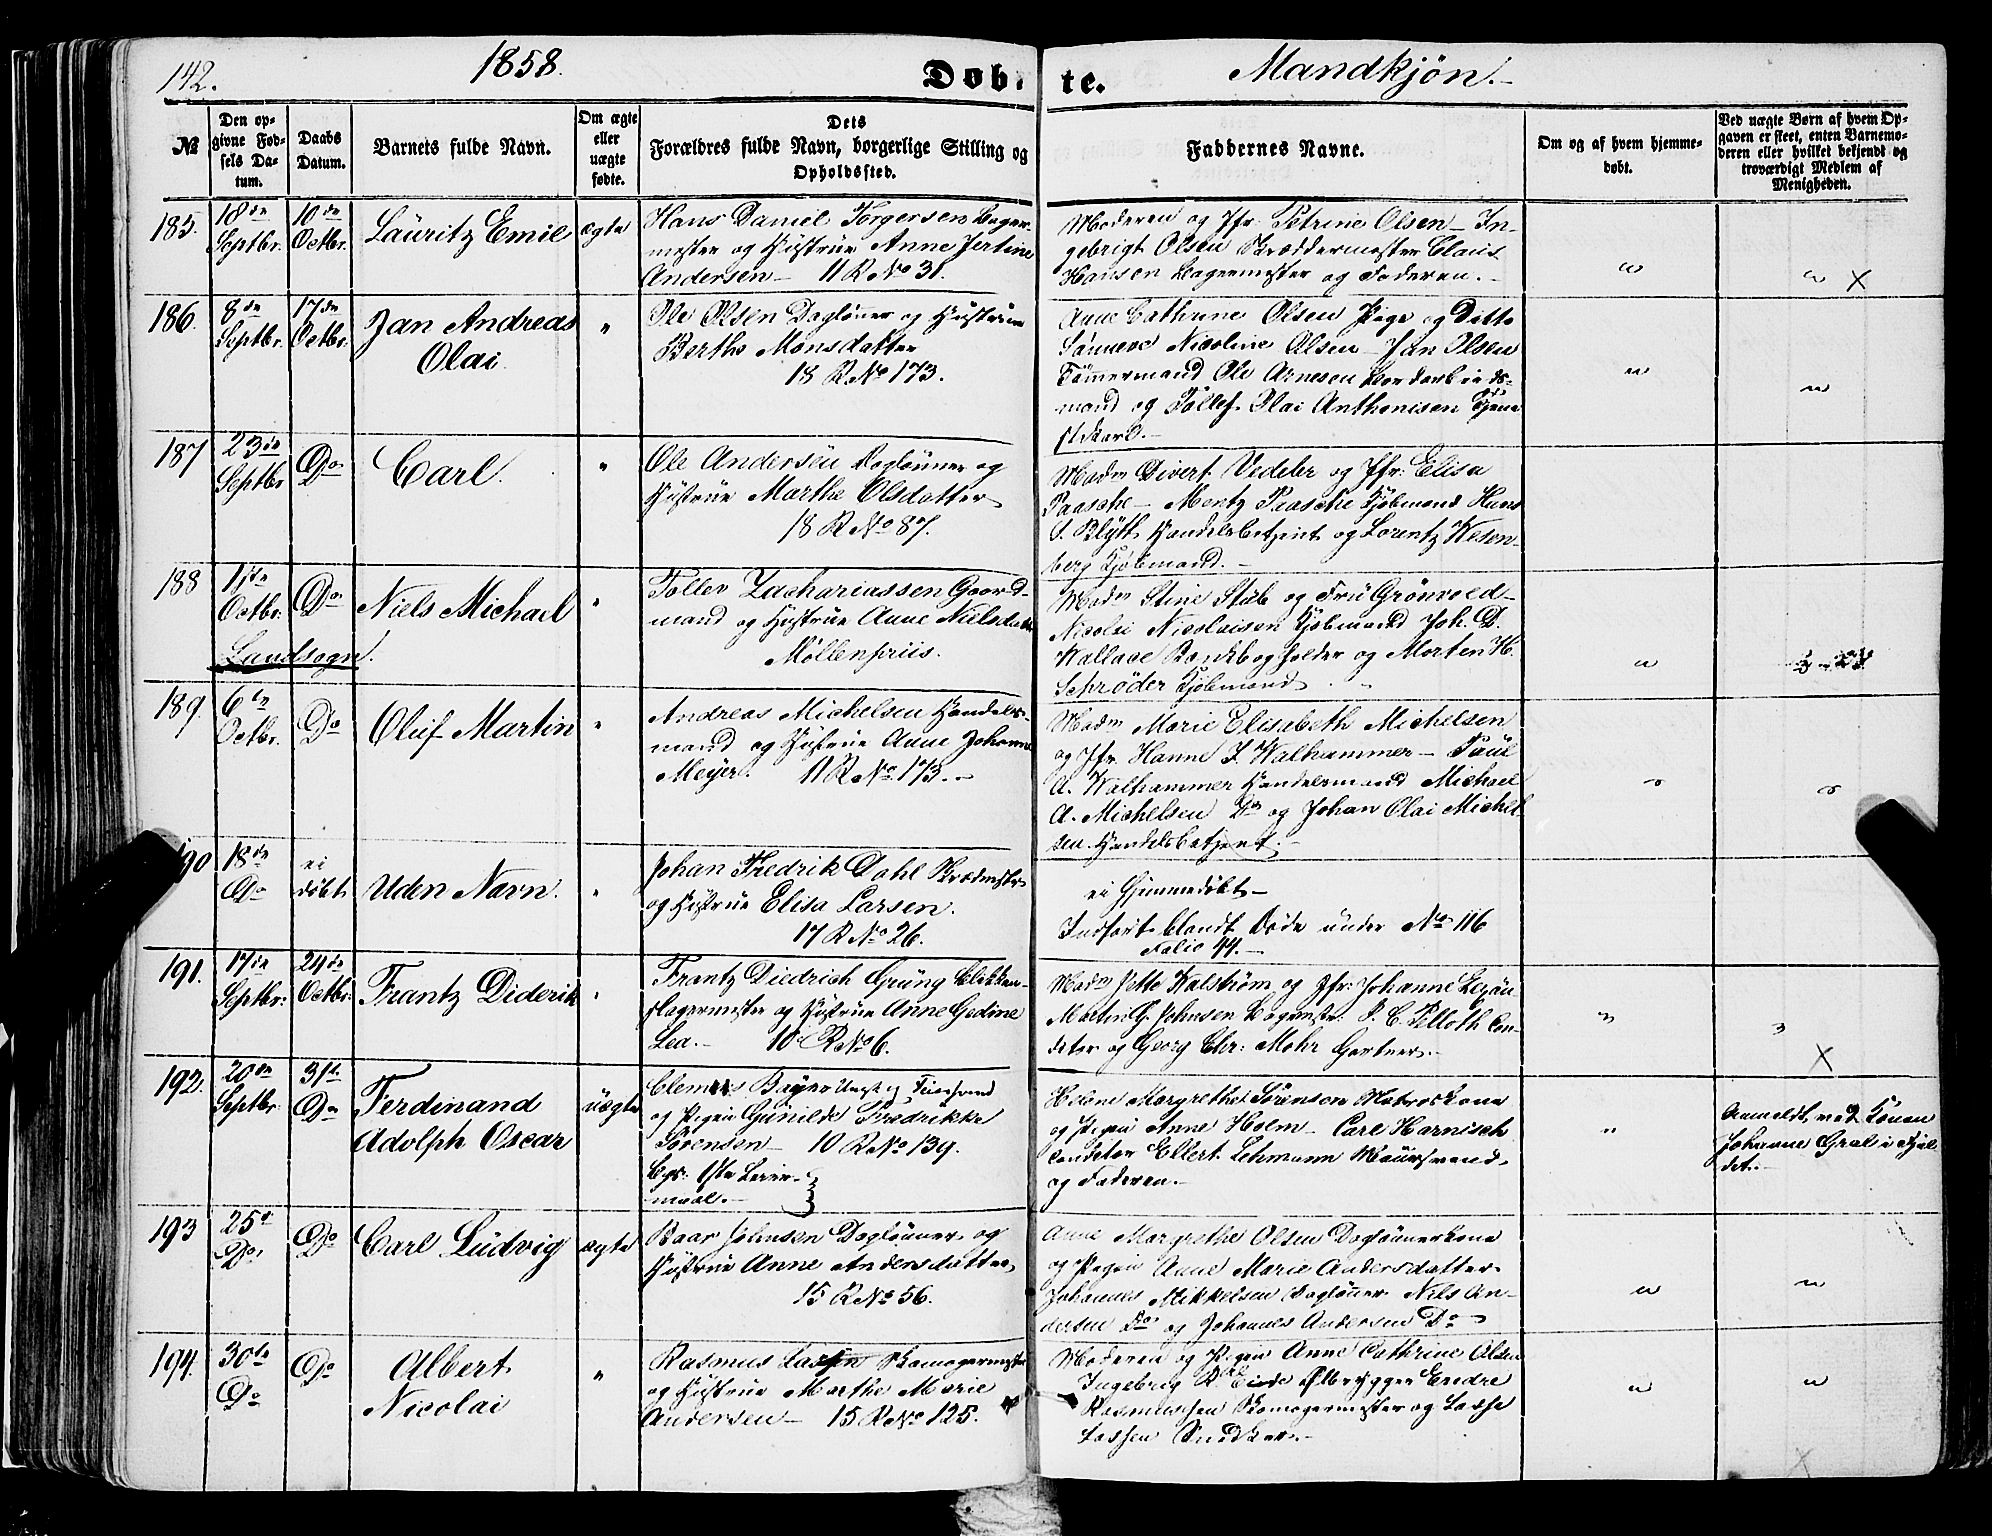 142.
1858.
Døbte.
Mandkjøn.
№
Den opgivne Fødsels Datum.
Daabs Datum.
Barnets fulde Navn.
Om ægte eller uægte fødte.
Dets Forældres fulde Navn, borgerlige Stilling og Opholdssted.
Faddernes Navne.
Om og af hvem hjemmedøbt.
Ved uægte Børn af hvem Opgaven er skeet, enten Barnemoderen eller hvilket bekjendt og troværdigt Medlem af Menigheden.
185.
18de Septbr.
10de Octbr.
Lauritz Emil
ægte
Hans Daniel Torgersen Bagermester og Hustrue Anne Jertine
Andersen 11 R No 31.
Moderen og Jfr. Petrine Olsen – Ingebrigt Olsen Skræddermester Claus
Hansen Bagermester og Faderen.
186.
8de Septbr.
17de Octbr.
Jan Andreas
Olai.
"
Ole Olsen Dagløner og Hustrue
Berthe Monsdatter
18 R No 173.
Anne Cathrine Olsen Pige og Ditto
Nicoline Olsen – Jan Olsen
Tømmermand Ole Arnesen
mand og Tollef Olai Anthonisen Tjenestekarl.
187
23de Septbr
Do
Carl.
"
Ole Andersen Dagløner og
Hustrue Marthe Olsdatter
18 R No 87.
Madm Divert Vedeler og Jfr. Elisa
Paasche – Mentz Paasche Kjøbmand Hans
S. Blytt Handelsbetjent og Lorentz Wesenberg Kjøbmand.
188
1ste Octbr.
Landsogn.
Do
Niels Michael
"
Toller Zachariassen Gaardmand og Hustrue Anne Nielsdatter
Møllenpriis.
Madm Stine Stub og Fru Grönvold
Nicolai Nicolaisen Kjøbmand Joh. D.
Wallace Bankbogholder og Morten H.
Schrøder Kjøbmand
189.
6te Octbr.
Do
Oluf Martin
"
Andreas Michelsen Handelsmand og Hustrue Anne Johanne
Meyer. 11 R No 173.
Madm Marie Elisabeth Michelsen
og Jfr. Hanne J. Walhammer – Paul
A. Walhammer Handelsmand Michael
A. Michelsen Do og Johan Olai Michelsen Handelsbetjent.
190
18de Do
ei døbt
Uden Navn.
"
Johan Fredrik Dahl
og Hustrue Elisa Larsen.
17 R No 26.
ei Hjemmedøbt –
Indført blandt Døde under No 116
Folio 44.
191.
17de Septbr:
24de Octbr
Frantz Diderik
"
Frantz Diedrich Grüng Blikkenslagermester og Hustrue Anne Gedine
Lea. 10 R No 6.
Madm Jette Walstrøm og Jfr: Johanne
Martin G. Johnsen Bagermester J. C. Pelloth Conditor og Georg Chr: Mohr Gartner.
192.
20de Septbr.
31te Do
Ferdinand
Adolph Oscar
uægte
Clemens Bayer
og Pigen Gunilde Fredrikke
Sørensen 10 R No 139.
Begs: 1ste Leiermaal.
Helene Margrethe Sørensen Matroskone
og Pigen Anne Holm – Carl Harnisch
Conditor Ellert Lehmann Muursvend
og Faderen.
Anmeldt ved Konen
Johanne
193
25d Do
Do
Carl Ludvig
ægte
Baar Johnsen Dagløner og
Hustrue Anne Andersdatter
15 R No 56.
Anne Margrethe Olsen Daglønerkone
og Pigen Anne Marie Andersdatter
Johannes Mikkelsen Dagløner Nils Andersen Do og Johannes Andersen Do
194.
30te Do
Do
Albert
Nicolai
"
Rasmus Lassen Skomagermester
og Hustrue Marthe Marie
Andersen 15 R No 125.
Moderen og Pigen Anne Cathrine Olsen
Ingebrig R Eide Ølbrygger Endre
Rasmussen Skomagermester og Lasse
Lassen Snedker.